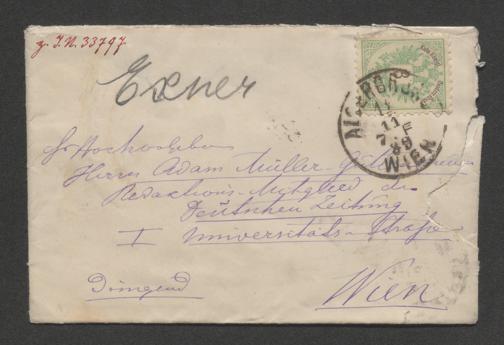 z. I.N. 33797
Exner
ALSERGRUND
11
7 F
89
WIEN
Sr Hochwohlgeboren
Herrn Adam Müller-Guttenbrunn
Redaktions-Mitglied der
Deutschen Zeitung
I Universitäts-Straße
Dringend
Wien